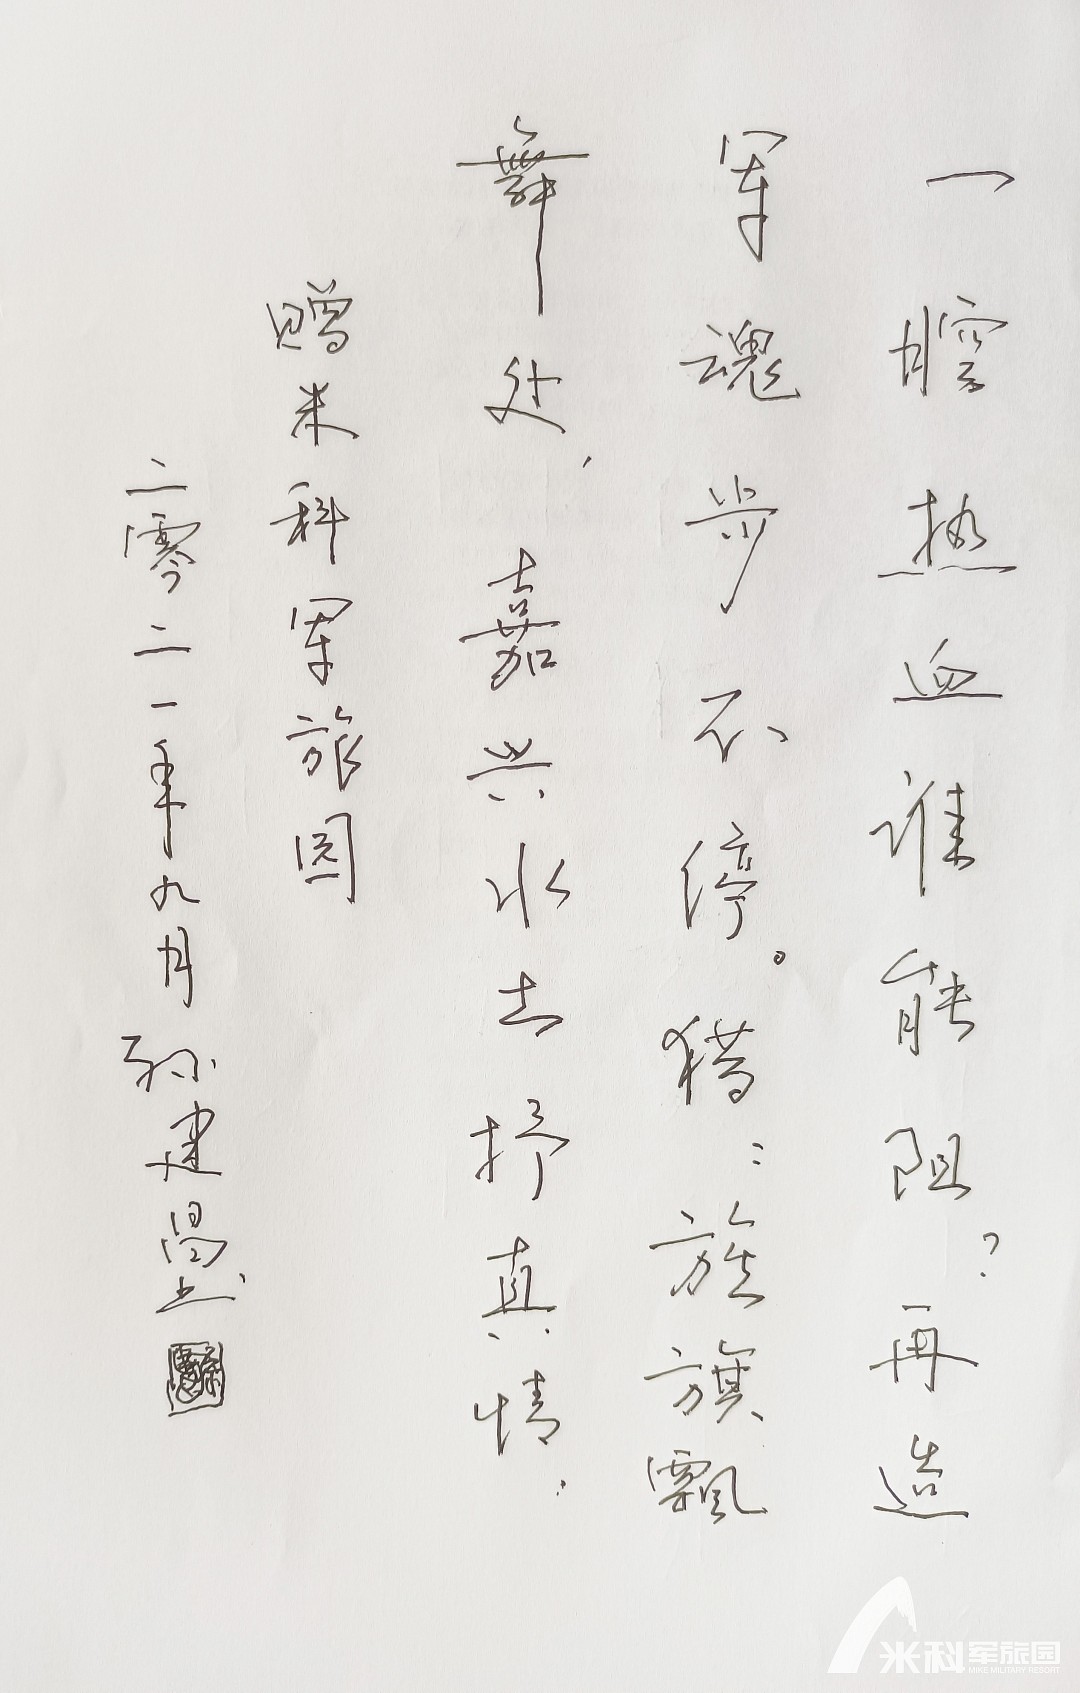 一腔热血谁能阻？再造
军魂步不停。猎：旌旗飘
舞处，嘉兴水上抒真情.
赠米科军旅园
二零二一年九月孙建
米科军旅园
MIKE MILITARY RESORT